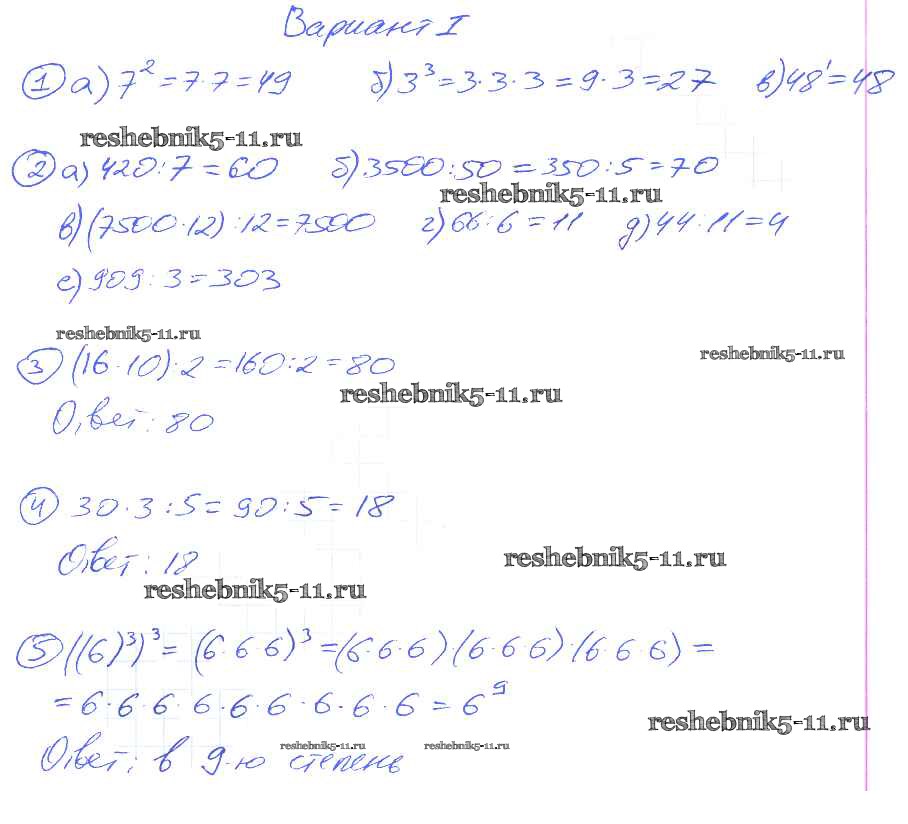 Вариант I
① а) 7² = 7·7 = 49 б) 3³ = 3·3·3 = 9·3 = 27 в) 48¹ = 48
reshebnik5-11.ru
② а) 420:7 = 60 б) 3500:50 = 350:5 = 70
reshebnik5-11.ru
в) (7500·12):12 = 7500 г) 66:6 = 11 д) 44:11 = 4
е) 909:3 = 303
reshebnik5-11.ru
reshebnik5-11.ru
③ (16·10):2 = 160:2 = 80
reshebnik5-11.ru
Ответ: 80
④ 30·3:5 = 90:5 = 18
Ответ: 18
reshebnik5-11.ru
reshebnik5-11.ru
⑤ ((6)³)³ = (6·6·6)³ = (6·6·6)(6·6·6)·(6·6·6) =
= 6·6·6·6·6·6·6·6·6 = 6⁹
reshebnik5-11.ru
Ответ: в 9-ю степень
reshebnik5-11.ru reshebnik5-11.ru